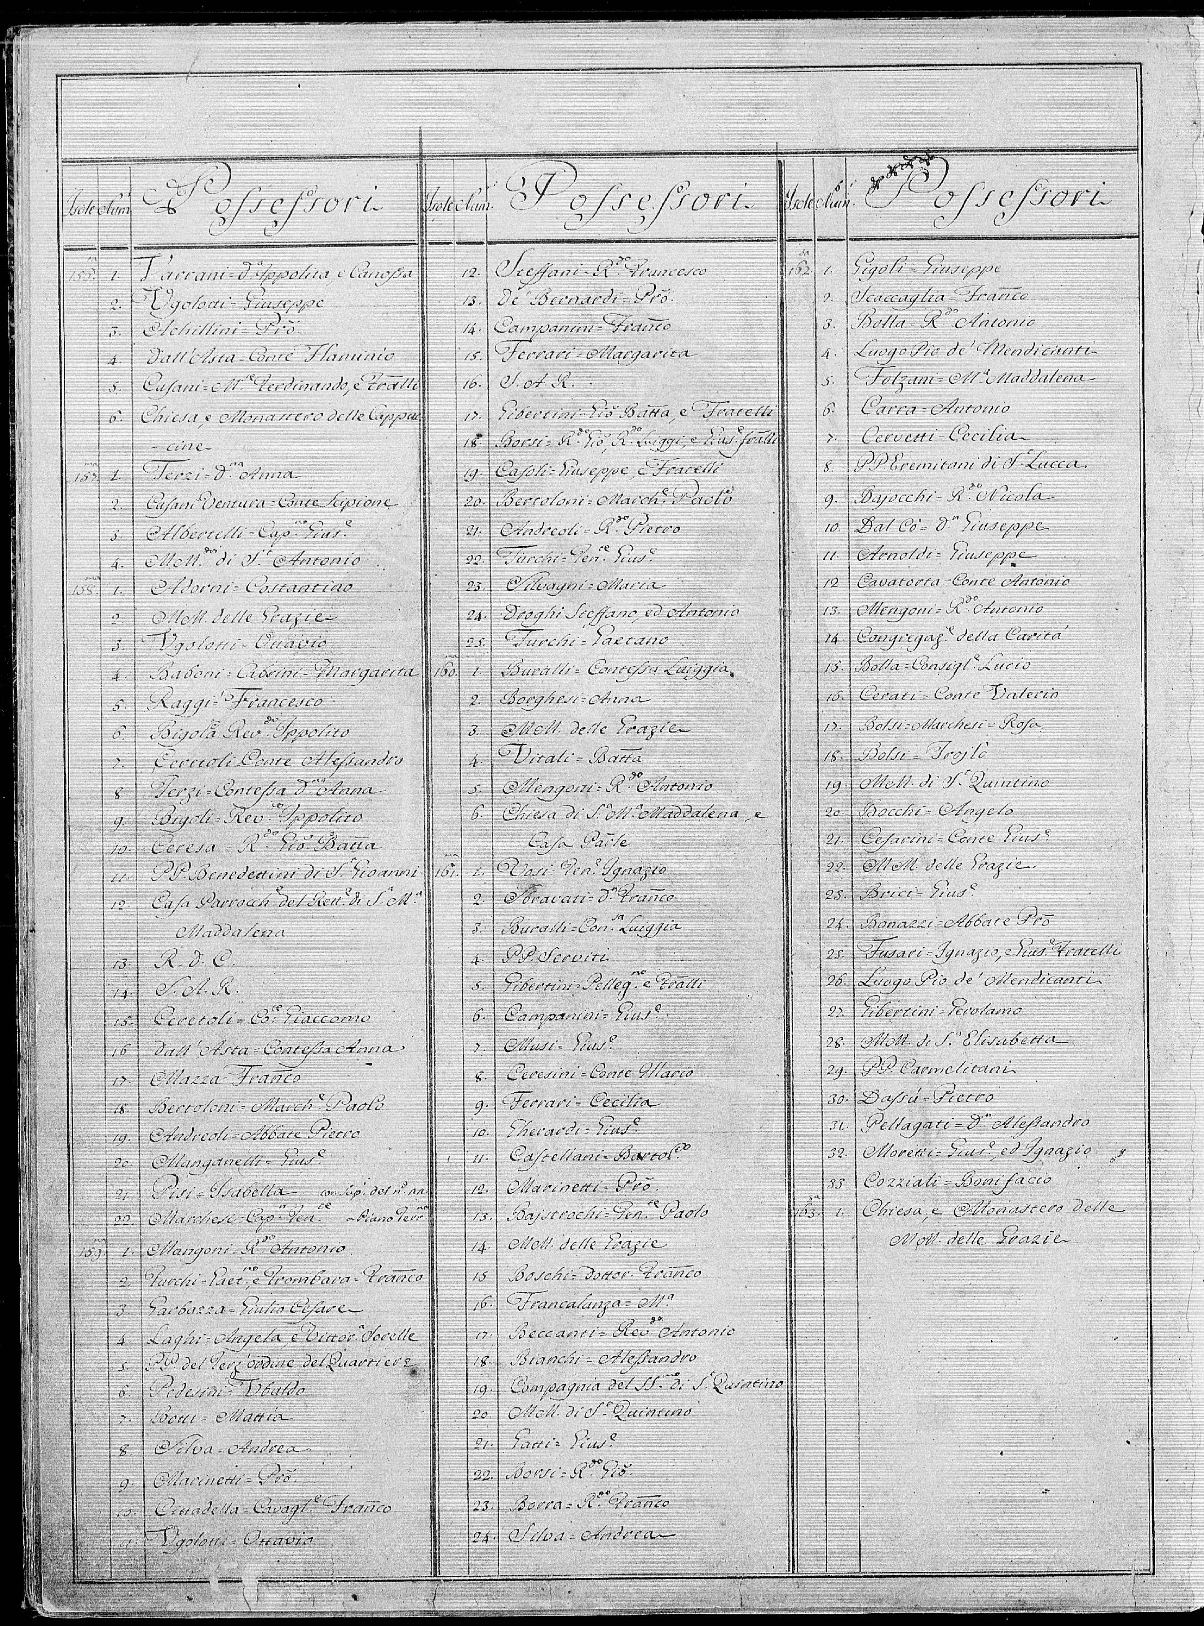 Isole Num. Possessori
156. 1. Tarrani = D.a Ippolita, e Canossa
2. Vgolotti = Giuseppe
3. Achillini = Pro.
4. Dall'Asta = Conte Flaminio
5. Cusani = M.se Ferdinando, e Fratlli
6. Chiesa, e Monastero delle Cappuc-
cine
157. 1. Terzi = D.na Anna
2. Casani Ventura = Conte Scipione
3. Albertelli = Cap.no Gius.e
4. MoM. di S.t Antonio
158. 1. Adorni = Costantino
2. MoM. delle Grazie
3. Vgolotti = Ottavio
4. Baboni = Caberini = Margarita
5. Raggi = Francesco
6. Bigola Rev.do Ippolito
7. Cerrioli Conte Alessandro
8. Terzi = Contessa D.na Anna
9. Bigoli = Rev.do Ippolito
10. Ceresa = R.do Gio. Batta
11. PP. Benedettini di S. Gioanni
12. Casa Parroch.e del Rett.e di S.a M.a
Maddalena
13. R. D. C.
14. S. A. R.
15. Ceretoli = Co. Giaccomo
16. Dall'Asta = Contessa Anna
17. Mazza Franco
18. Bertoloni = March.e Paolo
19. Andreoli = Abbate Pietro
20. Manganelli = Gius.e
21. Pisi = Isabella con sup. del n.o 22
22. Marchesi = Cap.n Ten.te = Piano Terr.no
159. 1. Mangoni = R.do Antonio
2. Turchi = Gaet.no, e Trombara = Franco
3. Garbazza = Giulio Cesare
4. Laghi = Angela e Vittor.a Sorelle
5. PP. del Terz'ordine del Quartiere
6. Pedesini = Vbaldo
7. Botti = Mattia
8. Silva = Andrea
9. Marinetti = Pro.
10. Cittadella = Cavagl.e Franco
11. Vgolotti = Ottavio
Isole Num. Possessori
12. Steffani = R.do Francesco
13. De' Bernardi = Pro.
14. Campanini = Franco
15. Ferrari = Margarita
16. S. A. R.
17. Gibertini = Gio. Batta, e Fratelli
18. Borsi = R.do Gio, R.do Luiggi, e Gius.e fratlli
19. Casoli = Giuseppe, e Fratelli
20. Bertoloni = March.e Paolo
21. Andreoli = R.do Pietro
22. Turchi = Ten.te Gius.e
23. Silvagni = Maria
24. Droghi Steffano, ed Antonio
25. Turchi = Gaetano
160. 1. Buralli = Contessa Luiggia
2. Borghesi = Anna
3. MoM. delle Grazie
4. Vitali = Batta
5. Mengoni = R.do Antonio
6. Chiesa di S.a M.a Maddalena, e
Casa Parle
161. 1. Rosi Ten.e Ignazio
2. Abravati = D.n Franco
3. Buralli = Con.sa Luiggia
4. PP. Serviti
5. Gibertini = Pelleg.no e Fratlli
6. Campanini = Gius.e
7. Musi = Gius.e
8. Ceresini = Conte Mario
9. Ferrari = Cecilia
10. Gherardi = Gius.e
11. Castellani = Bartol.eo
12. Marinetti = Pro
13. Bajstrochi = Ten.te Paolo
14. MoM. delle Grazie
15. Boschi = dottor Franco
16. Francalanza = M.a
17. Beccanti = Rev.do Antonio
18. Bianchi = Alessandro
19. Compagnia del SS.mo di S.n Quintino
20. MoM. di S.n Quintino
21. Gatti = Gius.e
22. Borsi = R.do Gio.
23. Borra = R.do Franco
24. Silva = Andrea
Isole Num. Possessori
162. 1. Gigoli = Giuseppe
2. Scaccaglia = Franco
3. Bolla = R.do Antonio
4. Luogo Pio de' Mendicanti
5. Folzani = M.a Maddalena
6. Carra = Antonio
7. Cervetti = Cecilia
8. PP. Eremitani di S. Lucca
9. Dajocchi = R.do Nicola
10. Dal Cò = D.n Giuseppe
11. Arnoldi = Giuseppe
12. Cavatorta = Conte Antonio
13. Mengoni = R.do Antonio
14. Congregaz.e della Carità
15. Bolla = Consigl.e Lucio
16. Cerati = Conte Valerio
17. Bolsi = Marchesi = Rosa
18. Bolsi = Troglio
19. MoM. di S.n Quintino
20. Bocchi = Angelo
21. Cesarini = Conte Gius.e
22. MoM. delle Grazie
23. Brici = Gius.e
24. Bonazzi = Abbate Pro
25. Fusari = Ignazio, e Gius.e Fratelli
26. Luogo Pio de' Mendicanti
27. Gibertini = Gerolamo
28. MoM. di S.a Elisabetta
29. PP. Carmelitani
30. Dassù = Pietro
31. Pellagati = D.n Alessandro
32. Moretti = Gius.e, ed Ignazio
33. Cozziali = Bonifacio
163. 1. Chiesa, e Monastero delle
MoM. delle Grazie